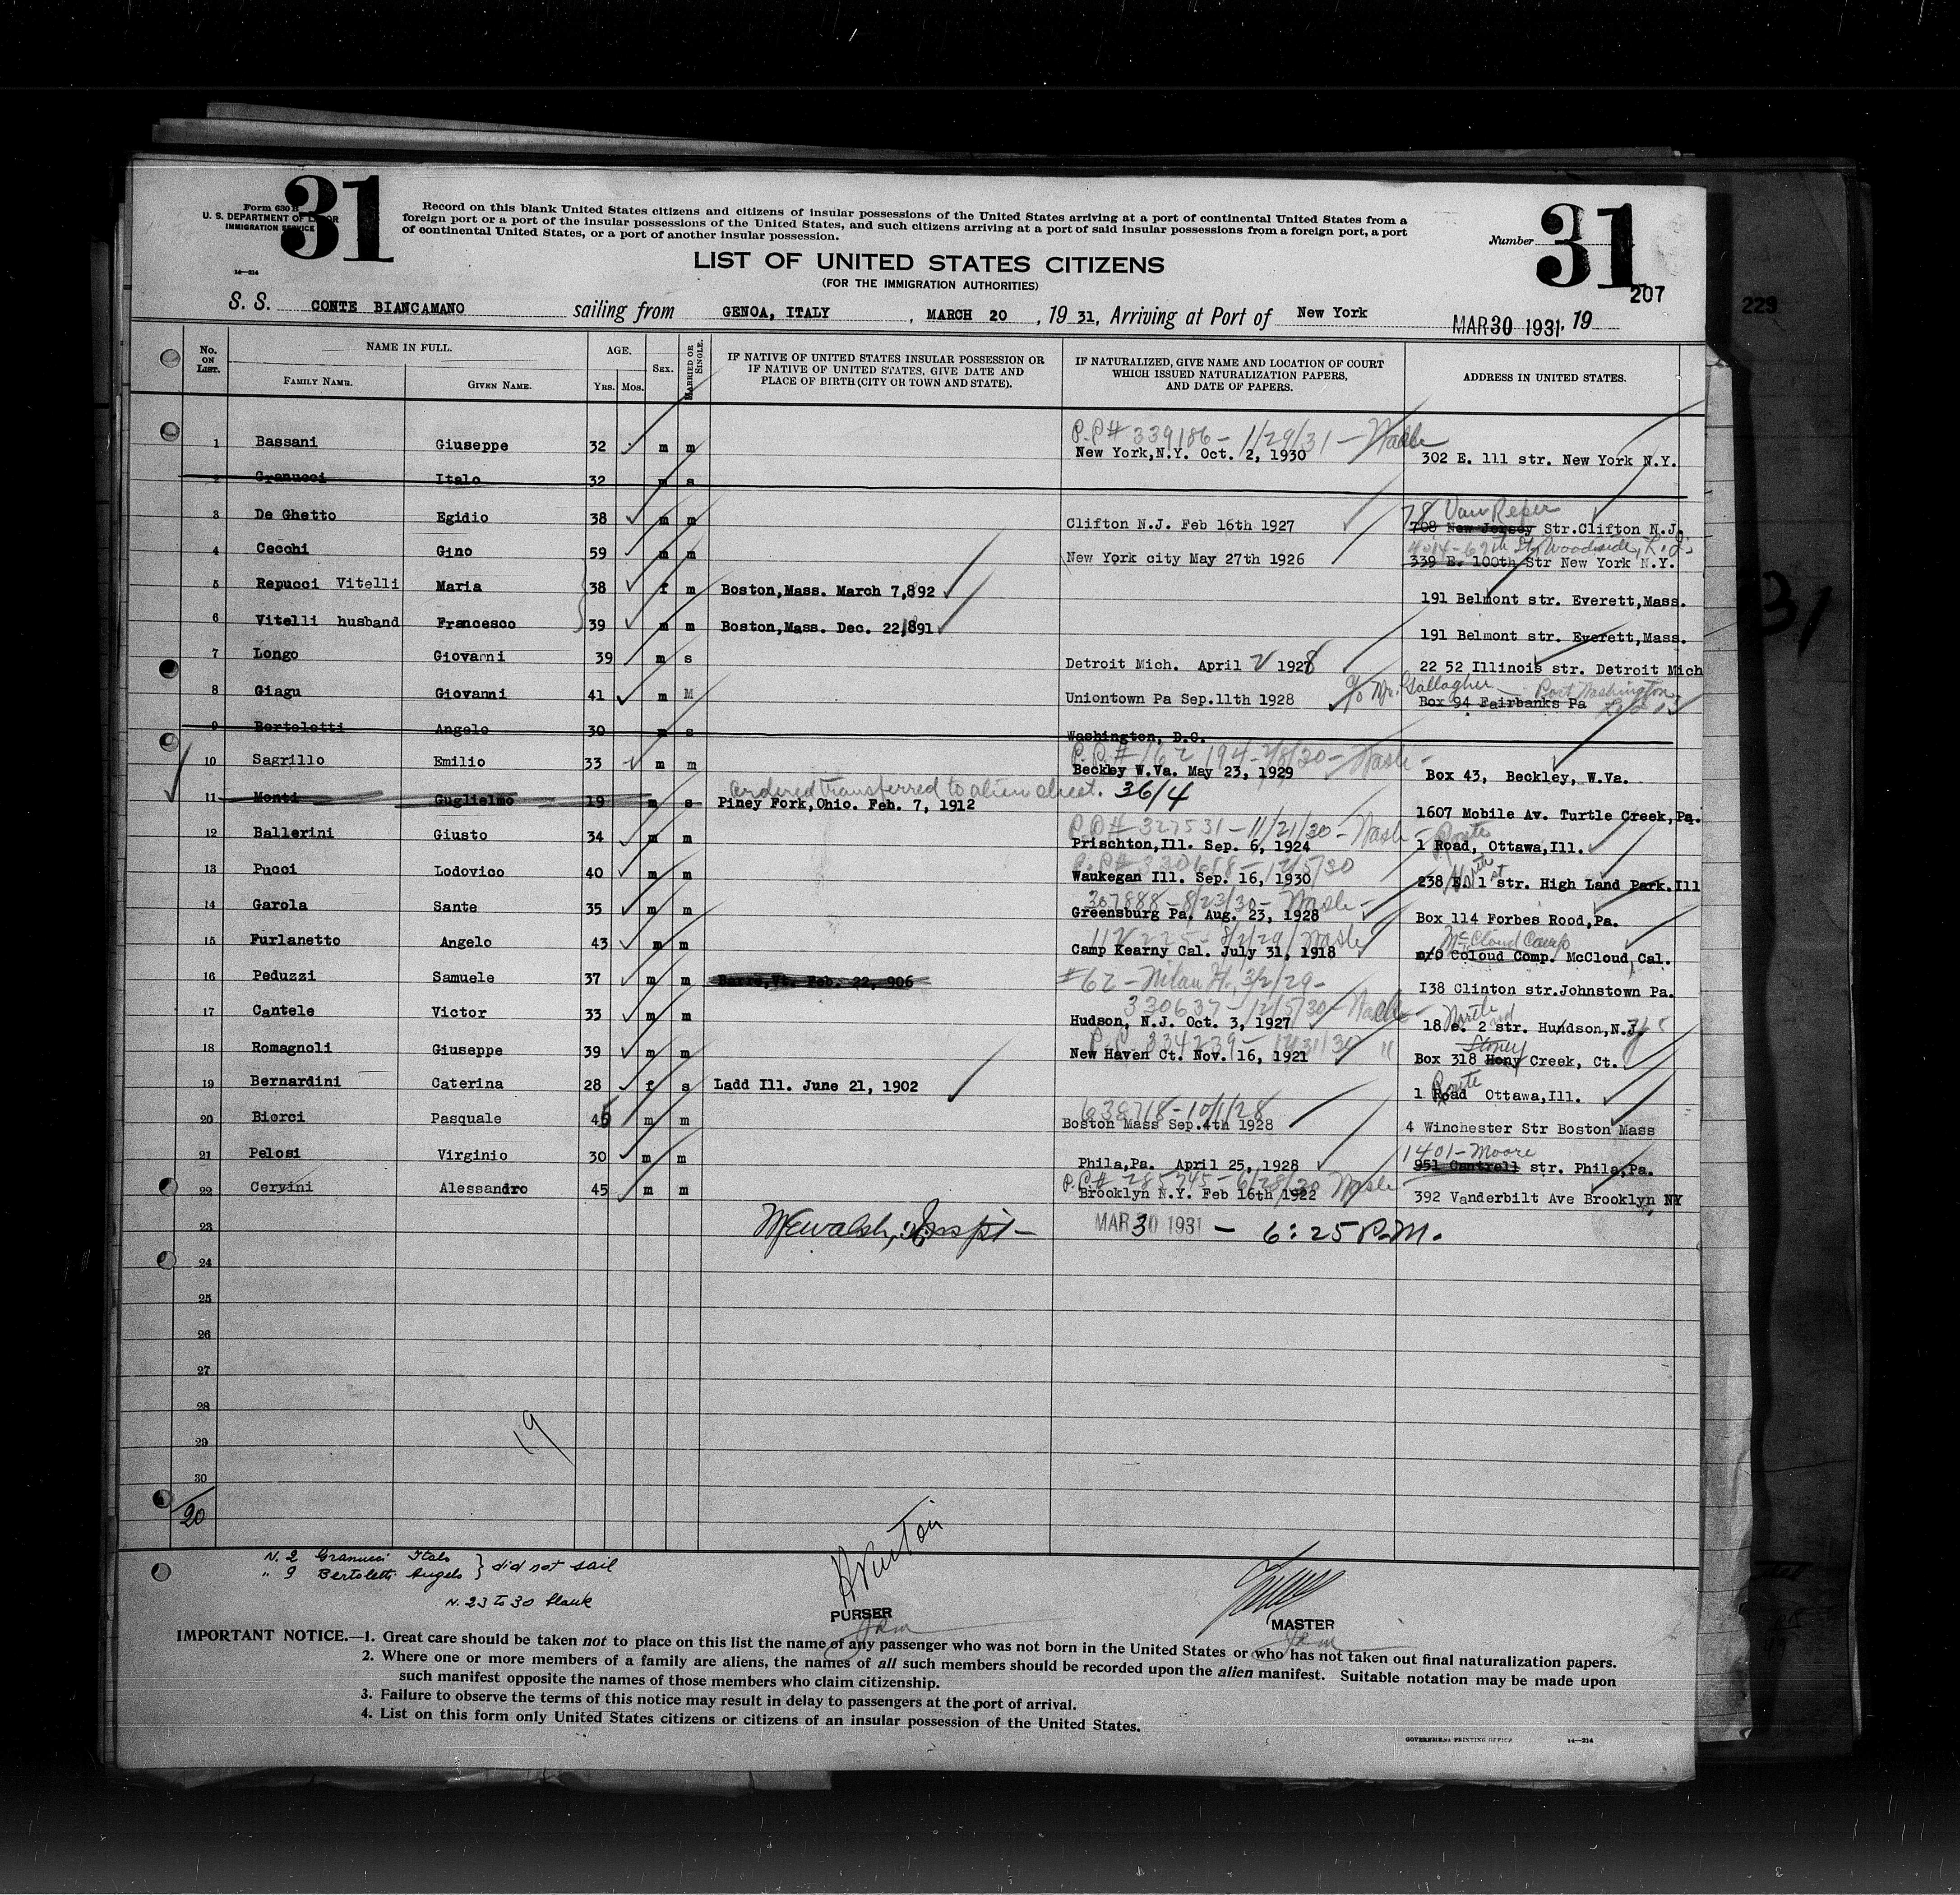 31
Form 630 B
U. S. DEPARTMENT OF LABOR
IMMIGRATION SERVICE
14—214
Record on this blank United States citizens and citizens of insular possessions of the United States arriving at a port of continental United States from a
foreign port or a port of the insular possessions of the United States, and such citizens arriving at a port of said insular possessions from a foreign port, a port
of continental United States, or a port of another insular possession.
Number 31
207
229
LIST OF UNITED STATES CITIZENS
(FOR THE IMMIGRATION AUTHORITIES)
S. S. CONTE BIANCAMANO sailing from GENOA, ITALY , MARCH 20 , 19 31, Arriving at Port of New York MAR 30 1931, 19
No. ON LIST. NAME IN FULL. AGE. SEX. MARRIED OR SINGLE. IF NATIVE OF UNITED STATES INSULAR POSSESSION OR IF NATIVE OF UNITED STATES, GIVE DATE AND PLACE OF BIRTH (CITY OR TOWN AND STATE). IF NATURALIZED, GIVE NAME AND LOCATION OF COURT WHICH ISSUED NATURALIZATION PAPERS, AND DATE OF PAPERS. ADDRESS IN UNITED STATES.
FAMILY NAME. GIVEN NAME. YRS. MOS.
P.P.# 339186 - 1/29/31 - Wash
1 Bassani Giuseppe 32 m m New York,N.Y. Oct. 2, 1930 302 E. 111 str. New York N.Y.
2 Granucci Italo 32 m s
78 Van Reper
3 De Ghetto Egidio 38 m m Clifton N.J. Feb 16th 1927 708 New Jersey Str.Clifton N.J.
4014-69th St, Woodside, L.I.
4 Cecchi Gino 59 m m New York city May 27th 1926 339 E. 100th Str New York N.Y.
5 Repucci Vitelli Maria 38 f m Boston,Mass. March 7,892 191 Belmont str. Everett,Mass.
6 Vitelli husband Francesco 39 m m Boston,Mass. Dec. 22,1891 191 Belmont str. Everett,Mass.
7 Longo Giovanni 39 m s Detroit Mich. April 2 1928 22 52 Illinois str. Detroit Mich
c/o Mr. Gallagher - Port Washington
8 Giagu Giovanni 41 m M Uniontown Pa Sep.11th 1928 Box 94 Fairbanks Pa
9 Bertoletti Angelo 30 m s Washington, D.C.
P.P.# 162 194 - 2/8/30 - Wash -
10 Sagrillo Emilio 33 m m Beckley W.Va. May 23, 1929 Box 43, Beckley, W.Va.
Ordered transferred to alien sheet. 36/4
11 Monti Guglielmo 19 m s Piney Fork,Ohio. Feb. 7, 1912 1607 Mobile Av. Turtle Creek,Pa.
P.P.# 327531 - 11/21/30 - Wash - Route
12 Ballerini Giusto 34 m m Prischton,Ill. Sep. 6, 1924 1 Road, Ottawa,Ill.
P.P.# 330618 - 12/5/30 North st
13 Pucci Lodovico 40 m m Waukegan Ill. Sep. 16, 1930 238 E. 1 str. High Land Park.Ill
307888 - 8/23/30 - Wash -
14 Garola Sante 35 m m Greensburg Pa. Aug. 23, 1928 Box 114 Forbes Rood,Pa.
112225 - 8/2/29 / Wash McCloud Camp
15 Furlanetto Angelo 43 m m Camp Kearny Cal. July 31, 1918 c/o Coloud Comp. McCloud, Cal.
16 Peduzzi Samuele 37 m m Barre,Vt. Feb. 22, 906 #62 - Milan It., 3/2/29 - I38 Clinton str.Johnstown Pa.
330637 - 12/5/30 - Wash - North
17 Cantele Victor 33 m m Hudson, N.J. Oct. 3, 1927 18 e. 2 str. Hundson,N.J.
P.P. 334239 - 12/31/30 " Stony
18 Romagnoli Giuseppe 39 m m New Haven Ct. Nov. 16, 1921 Box 318 Hony Creek, Ct.
Route
19 Bernardini Caterina 28 f s Ladd Ill. June 21, 1902 1 Road Ottawa,Ill.
638718 - 10/1/28
20 Bierci Pasquale 45 m m Boston Mass Sep.4th 1928 4 Winchester Str Boston Mass
1401 - Moore
21 Pelosi Virginio 30 m m Phila,Pa. April 25, 1928 951 Cantrell str. Phila,Pa.
P.P.# 285745 - 6/28/30 Wash
22 Cervini Alessandro 45 m m Brooklyn N.Y. Feb 16th 1922 392 Vanderbilt Ave Brooklyn NY
23 McWalsh, Inspt - MAR 30 1931 - 6:25 P.M.
24
25
26
27
28
29
30
19
20
N. 2 Granucci Italo } did not sail
" 9 Bertoletti Angelo
N. 23 to 30 blank
PURSER
MASTER
IMPORTANT NOTICE.—1. Great care should be taken not to place on this list the name of any passenger who was not born in the United States or who has not taken out final naturalization papers.
2. Where one or more members of a family are aliens, the names of all such members should be recorded upon the alien manifest. Suitable notation may be made upon
such manifest opposite the names of those members who claim citizenship.
3. Failure to observe the terms of this notice may result in delay to passengers at the port of arrival.
4. List on this form only United States citizens or citizens of an insular possession of the United States.
GOVERNMENT PRINTING OFFICE 14—214